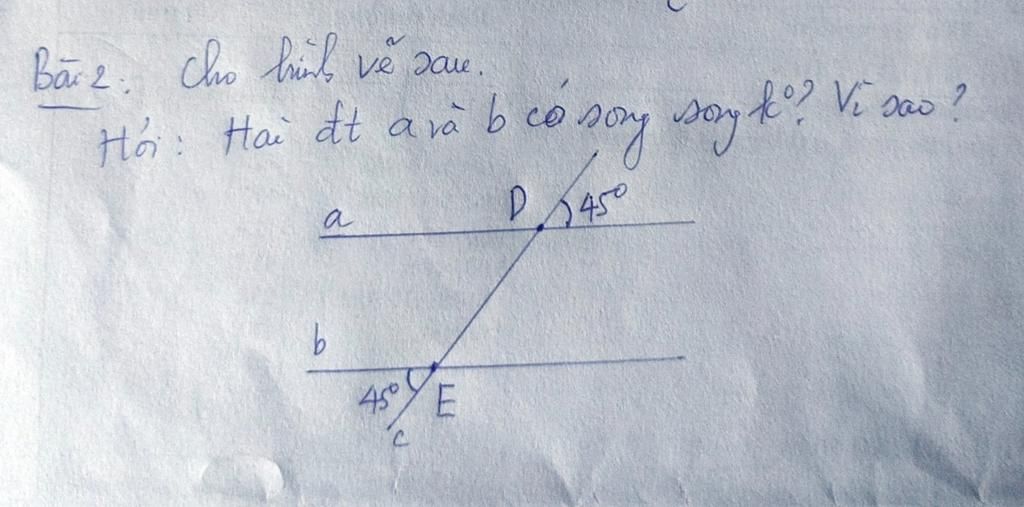 Bài 2: Cho hình vẽ sau.
Hỏi: Hai đt a và b có song song kº? Vì sao?
D 45°
a
b
45° E
c